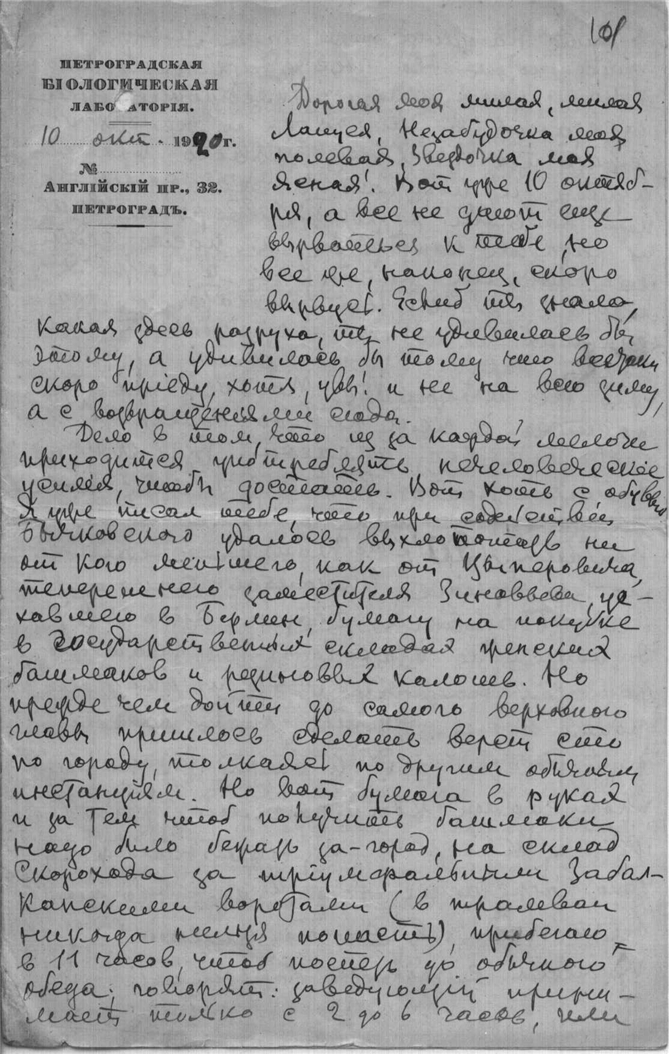 101
ПЕТРОГРАДСКАЯ
БІОЛОГИЧЕСКАЯ
ЛАБОРАТОРІЯ.
10 окт. 1920 г.
№
АНГЛІЙСКІЙ ПР., 32.
ПЕТРОГРАДЪ.
Дорогая моя милая, милая
Незабудочка моя
полевая, Звездочка моя
Ясная! Вот уже 10 октяб-
ря, а все не дают еще
вырваться к тебе, но
все же, наконец, скоро
вырвусь. Еслиб ты знала,
какая здесь разруха, ты не удивилась бы
этому, а удивилась бы тому что всетаки
скоро пріеду, хотя, увы! и не на всю зиму,
а с возвращеніями сюда.
Дело в том, что из за каждой мелочи
приходится употреблять нечеловеческіе
усилія, чтобы достать. Вот хоть с обувью
Я уже писал тебе, что при содействіи
Бычковского удалось выхлопотать ни
от кого меньшего, как от Цыперовича,
теперешнего заместителя Зиновьева, уе-
хавшего в Берлин, бумагу на покупку
в государственных складах женских
башмаков и резиновых калош. Но
прежде чем дойти до самого верховного
главы пришлось сделать верст сто
по городу, толкаясь по другим обычным
инстанціям. Но вот бумага в руках
и за тем чтоб получить башмаки
надо было бежать за-город, на склад
Скорохода за тріумфальными Забал-
канскими воротами (в трамвай
никогда нельзя попасть), прибегаю
в 11 часов, чтоб поспеть до обычного
обеда; говорят: заведующій прини-
мает только с 2 до 6 часов, или